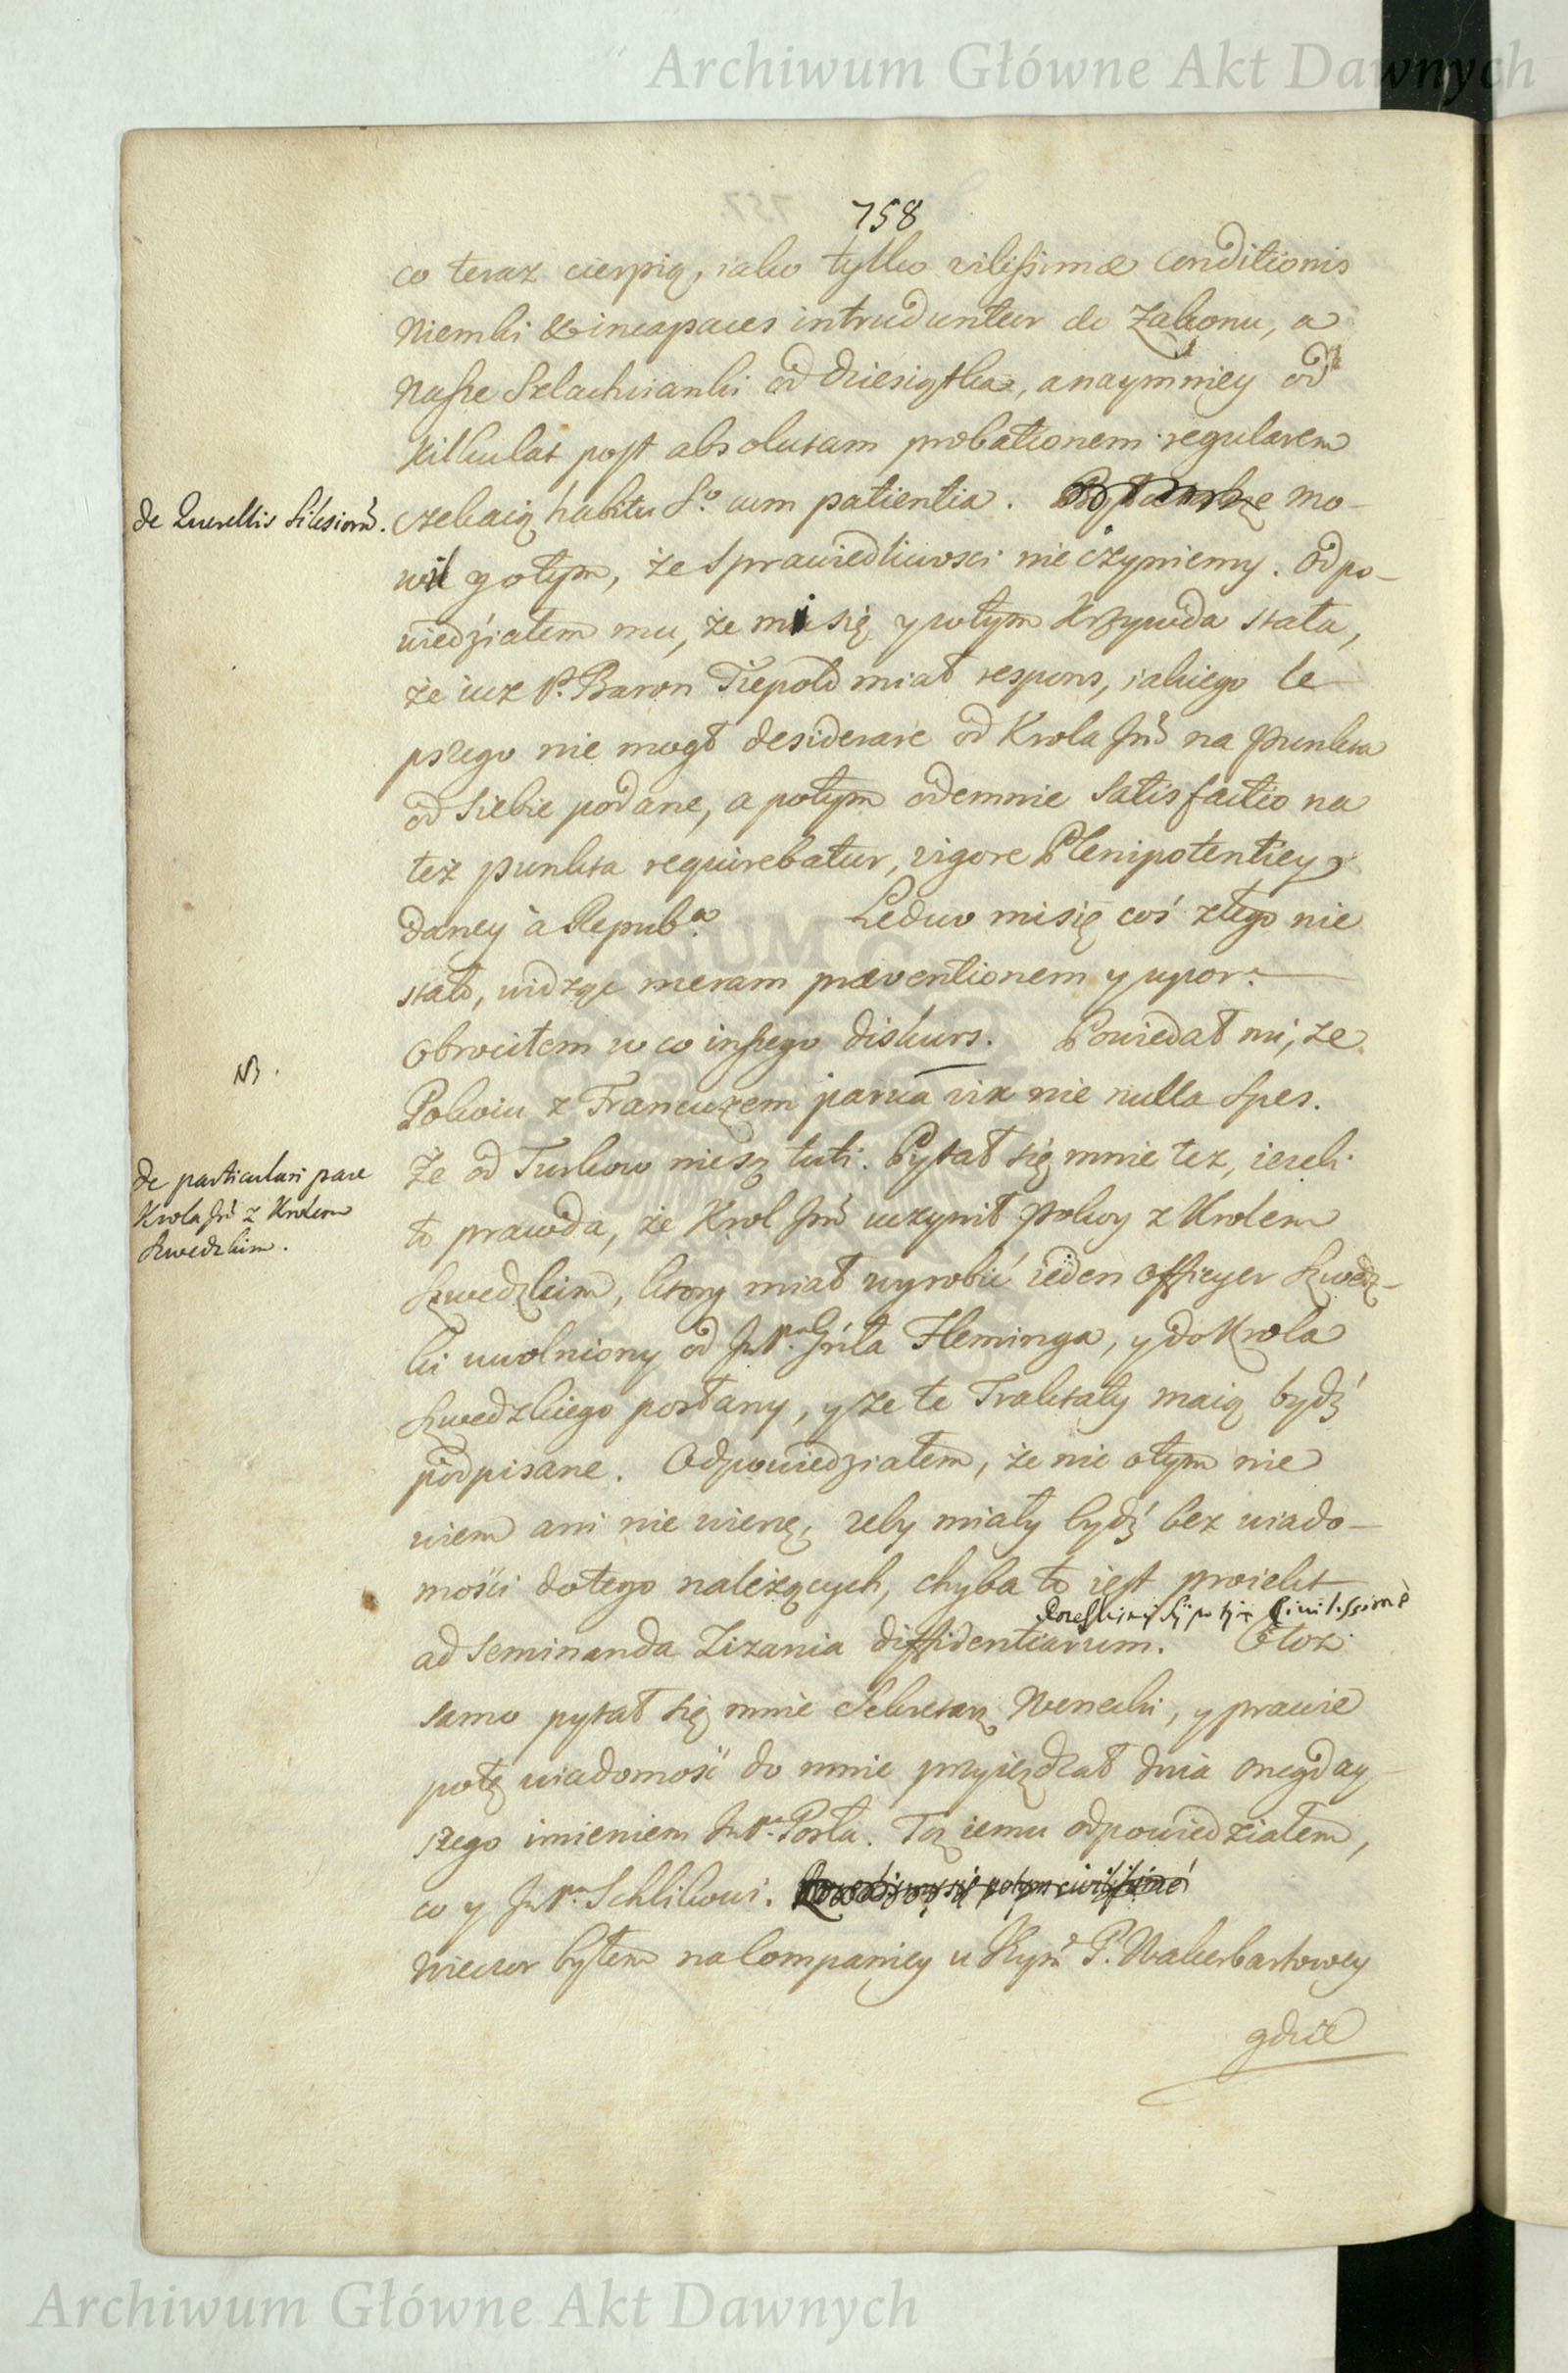 Archiwum Główne Akt Dawnych
758
co teraz cierpią, iako tylko vilissimæ Conditionis
Niemki & incapaces intruduntur do Zakonu, a
Nasze Szlachcianki od dziesiątka, a naymniey od
Kilkulat post absolutam probationem regularem
de Querellis Silesiorũ.
czekaią habitu S.º cum patientia. Mo-
wił y o tym, że Sprawiedliwosci nie czyniemy. Odpo-
wiedziałem mu, że mi się y w tym Krzywda stała,
że iuz P. Baron Tiepold miał respons, iakiego le
pszego nie mogł desiderare od Krola Jmć na punkta
od Siebie podane, a potym odemnie Satisfactio na
też punkta requirebatur, vigore Plenipotentiey
daney à Repub.ca Ledwo mi się coś złego nie
stało, widząc meram præventionem y upor.
Obrociłem w co inszego diskurs. Powiedał mi, ze
NB.
Pokoiu z Francuzem parva vix nie nulla Spes.
Że od Turkow nie są tuti. Pytał się mnie tez, iezeli
de particulari pace
Krola Jmć z Krolem
Szwedzkim.
to prawda, że Krol Jmć uczynił Pokoy z Krolem
Szwedzkim, ktory miał wyrobić ieden Officyer Szwedz-
ki uwolniony od JmP.a Grła Fleminga, y do Krola
Szwedzkiego posłany, y ze te Traktaty maią bydź
podpisane. Odpowiedziałem, że nic o tym nie
wiem ani nie wierzę, zeby miały bydź bez wiado-
mości do tego należących, chyba to iest proiekt
Rozeszlismy się potym Civilissimè
ad Seminanda Zizania diffidentiarum. Otoż
samo pytał się mnie Sekretarz Wenecki, y prawie
po tę wiadomość do mnie przyieżdzał dnia onegday
szego imieniem JmP.a Posła. Toż iemu odpowiedziałem,
co y JmP.a Schlikowi. Rozeszlismy się potym civilissimè
Wieczor byłem na Kompaniey u P. Wakerbartowey
gdzie
Archiwum Główne Akt Dawnych